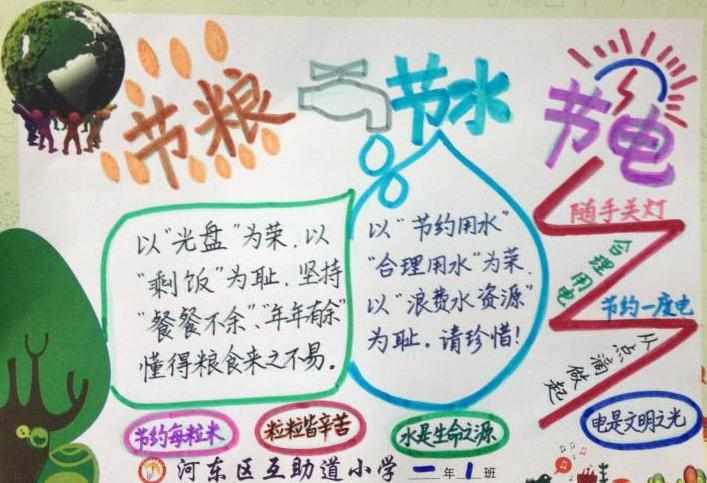 节粮
节水
节电
以“光盘”为荣,以
“剩饭”为耻.坚持
“餐餐不余”、“年年有余”
懂得粮食来之不易。
以“节约用水”
“合理用水”为荣.
以“浪费水资源”
为耻.请珍惜!
随手关灯
合理用电
节约一度电
从点滴做起
节约每粒米
粒粒皆辛苦
水是生命之源
电是文明之光
河东区互助道小学 一年1班